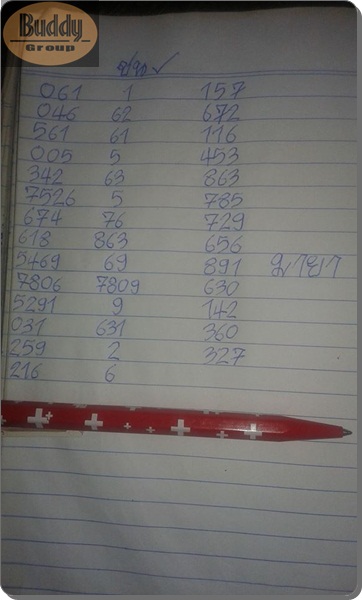 Buddy
Group
ชุด ✓
061 1 157
046 62 672
561 61 116
005 5 453
342 63 863
7526 5 785
674 76 729
618 863 656
5469 69 891 มายา
7806 7809 630
5291 9 142
031 631 360
259 2 327
216 6